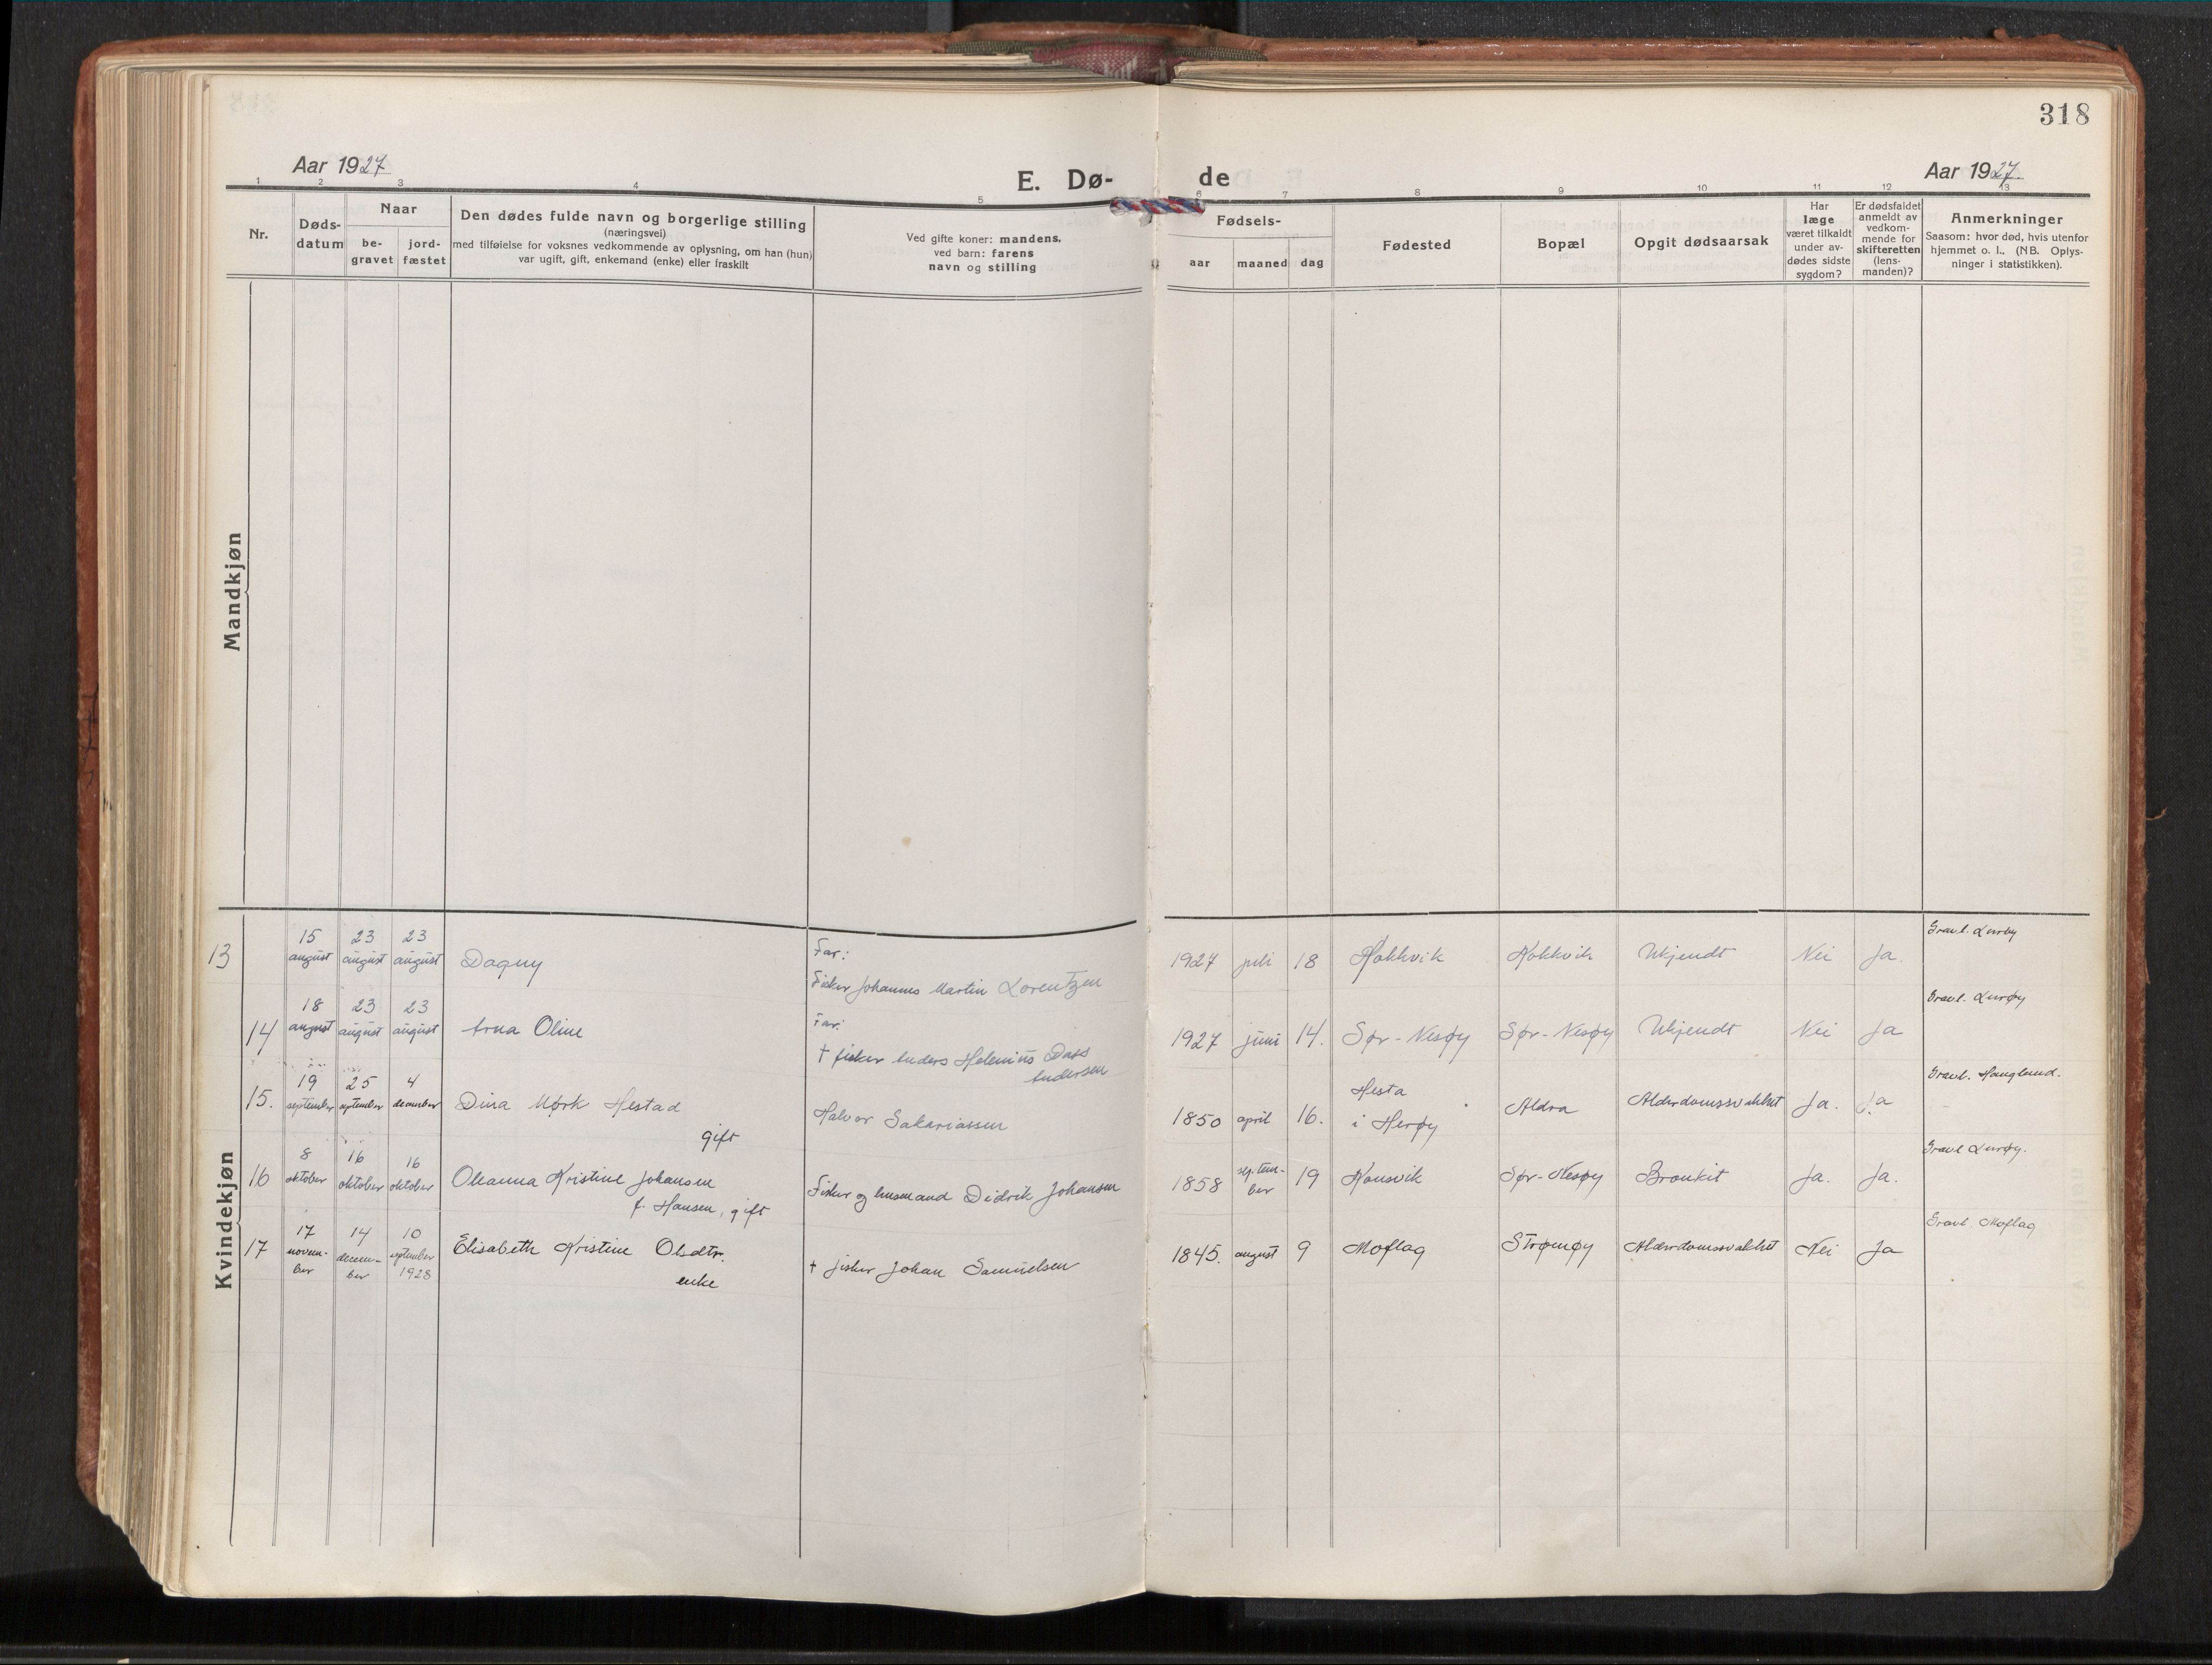 318
Aar 1927
E. Dø-
de
Aar 1927.
1 2 3 4 5 6 7 8 9 10 11 12 13
Nr.
Døds-
datum
Naar
be-
gravet
jord-
fæstet
Den dødes fulde navn og borgerlige stilling
(næringsvei)
med tilføielse for voksnes vedkommende av oplysning, om han (hun)
var ugift, gift, enkemand (enke) eller fraskilt
Ved gifte koner: mandens,
ved barn: farens
navn og stilling
Fødsels-
aar maaned dag
Fødested
Bopæl
Opgit dødsaarsak
Har
læge
været tilkaldt
under av-
dødes sidste
sygdom?
Er dødsfaldet
anmeldt av
vedkom-
mende for
skifteretten
(lens-
manden)?
Anmerkninger
Saasom: hvor død, hvis utenfor
hjemmet o. l. (NB. Oplys-
ninger i statistikken).
Mandkjøn
Kvindekjøn
13
15
august
23
august
23
august
Dagny
Far:
Fisker Johannes Martin Lorentzen
1927 juli 18 Kokkvik Kokkvik Ukjendt Nei Ja.
Gravl. Lurøy
14
18
august
23
august
23
august
Arna Oline
Far:
† fisker Anders Helenius Dass
Andersen
1927 juni 14. Sør-Nesøy Sør-Nesøy Ukjendt Nei Ja
Gravl. Lurøy
15.
19
september
25
september
4
december
Dina Mørk Hestad
gift
Halvor Sakariassen
1850 april 16.
Hesta
i Herøy
Aldra Alderdomssvakhet Ja. Ja
Gravl. Haugland.
16
8
oktober
16
oktober
16
oktober
Oleanna Kristine Johansen
f. Hansen, gift
Fisker og husmand Didrik Johansen
1858
septem-
ber
19 Konsvik Sør-Nesøy Bronkit Ja. Ja.
Gravl Lurøy.
17
17
novem-
ber
14
decem-
ber
10
september
1928
Elisabeth Kristine Olsdtr.
enke
† fisker Johan Samuelsen
1845. august 9 Moflag Strømøy Alderdomssvakhet Nei Ja
Gravl Moflag